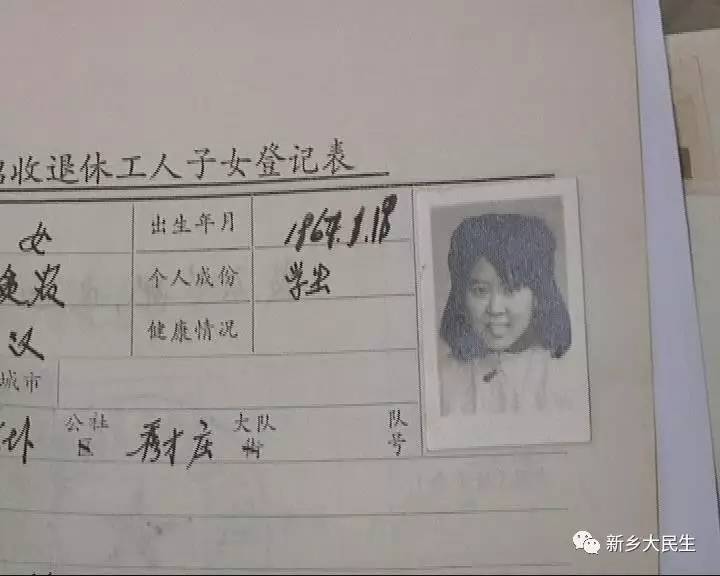 招收退休工人子女登记表
女 出生年月
个人成份 学生
汉 健康情况
城市
公社 秀才庄 大队 队
区 街 号
新乡大民生